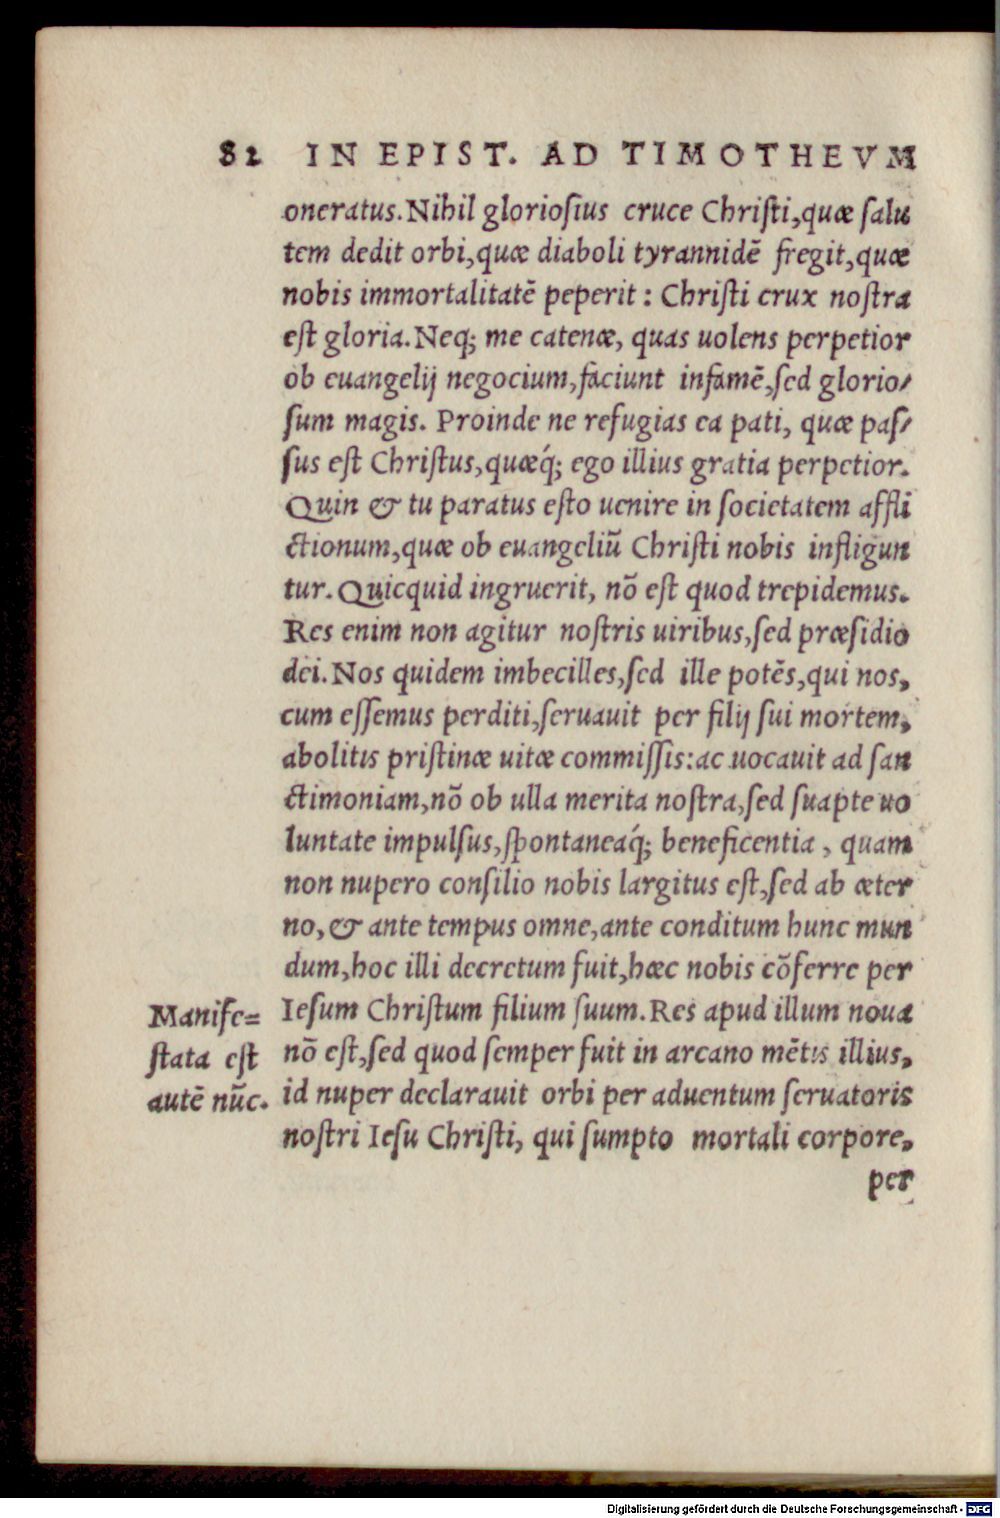 82 IN EPIST. AD TIMOTHEVM
oneratus. Nihil gloriosius cruce Christi, quæ salu
tem dedit orbi, quæ diaboli tyrannidē fregit, quæ
nobis immortalitatē peperit : Christi crux nostra
est gloria. Neq; me catenæ, quas uolens perpetior
ob euangelij negocium, faciunt infamē, sed glorio/
sum magis. Proinde ne refugias ea pati, quæ pas/
sus est Christus, quæq́; ego illius gratia perpetior.
Quin & tu paratus esto uenire in societatem affli
ctionum, quæ ob euangeliū Christi nobis infligun
tur. Quicquid ingruerit, nō est quod trepidemus.
Res enim non agitur nostris uiribus, sed præsidio
dei. Nos quidem imbecilles, sed ille potēs, qui nos,
cum essemus perditi, seruauit per filij sui mortem,
abolitis pristinæ uitæ commissis: ac uocauit ad san
ctimoniam, nō ob ulla merita nostra, sed suapte uo
luntate impulsus, spontaneaq́; beneficentia , quam
non nupero consilio nobis largitus est, sed ab æter
no, & ante tempus omne, ante conditum hunc mun
dum, hoc illi decretum fuit, hæc nobis cōferre per
Iesum Christum filium suum. Res apud illum noua
nō est, sed quod semper fuit in arcano mētis illius,
id nuper declarauit orbi per aduentum seruatoris
nostri Iesu Christi, qui sumpto mortali corpore,
per
Manife=
stata est
autē nūc.
Digitalisierung gefördert durch die Deutsche Forschungsgemeinschaft - DFG